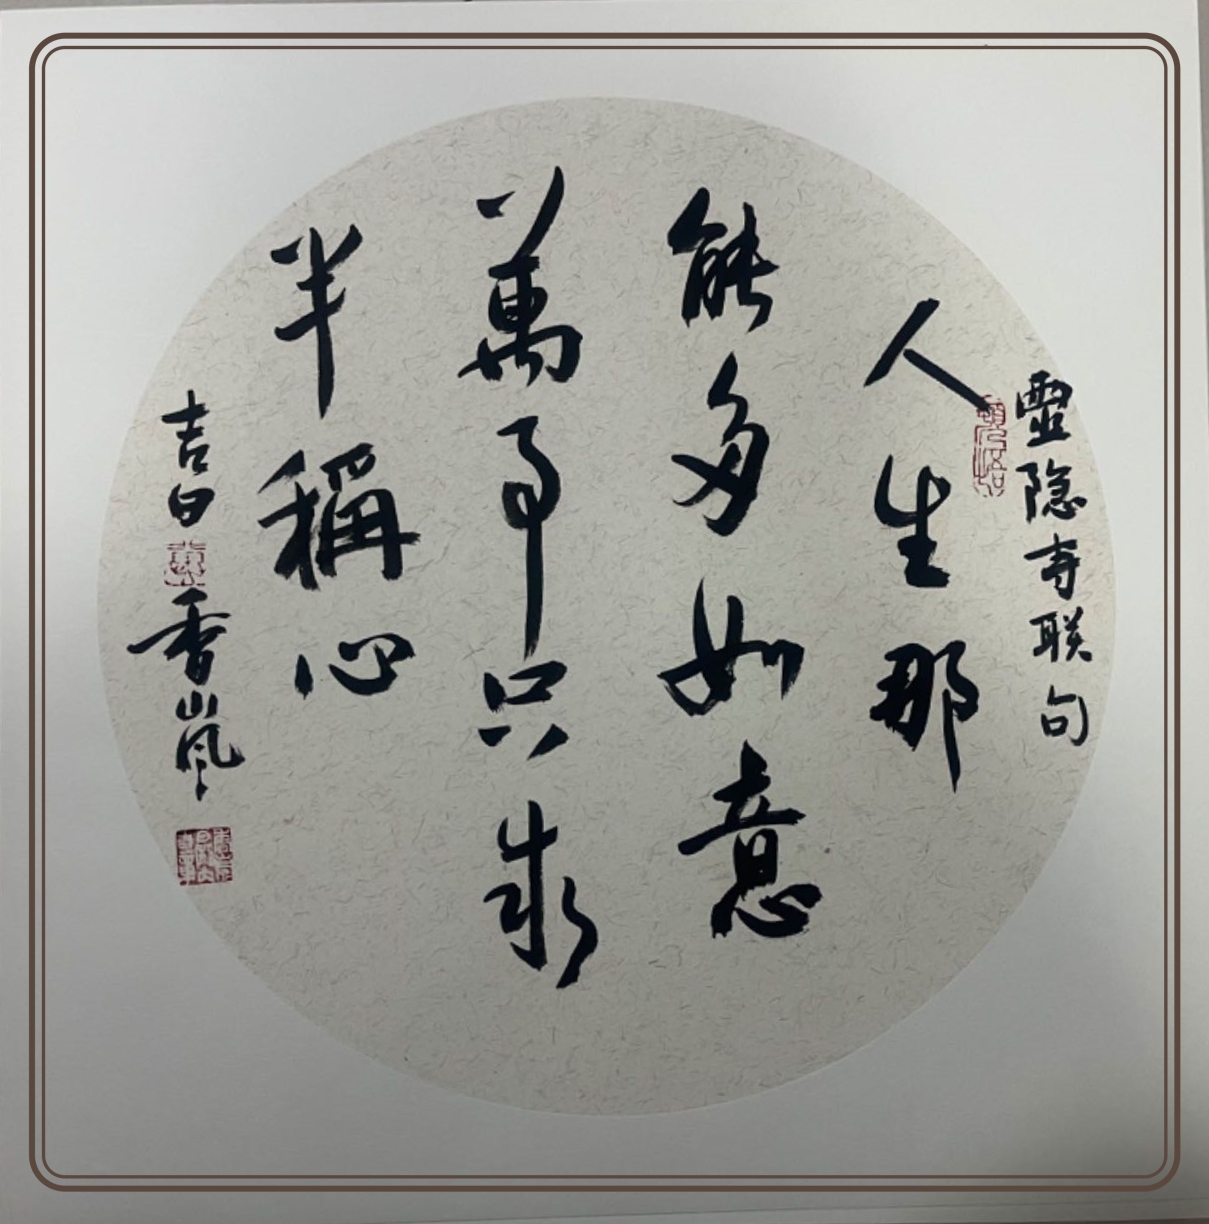 靈隐寺联句
人生那
能多如意
萬事只求
半稱心
吉日
香嵐